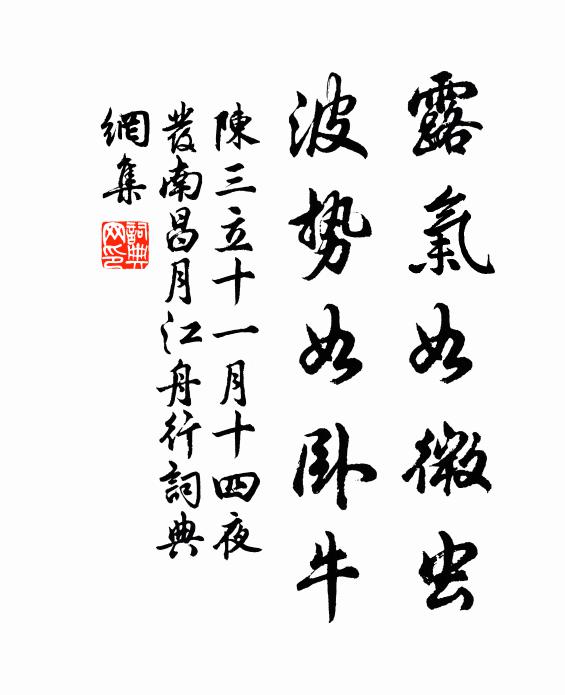 露氣如微虫
波势如卧牛
陳三立十一月十四夜
發南昌月江舟行詞典
網集
詞典
网印